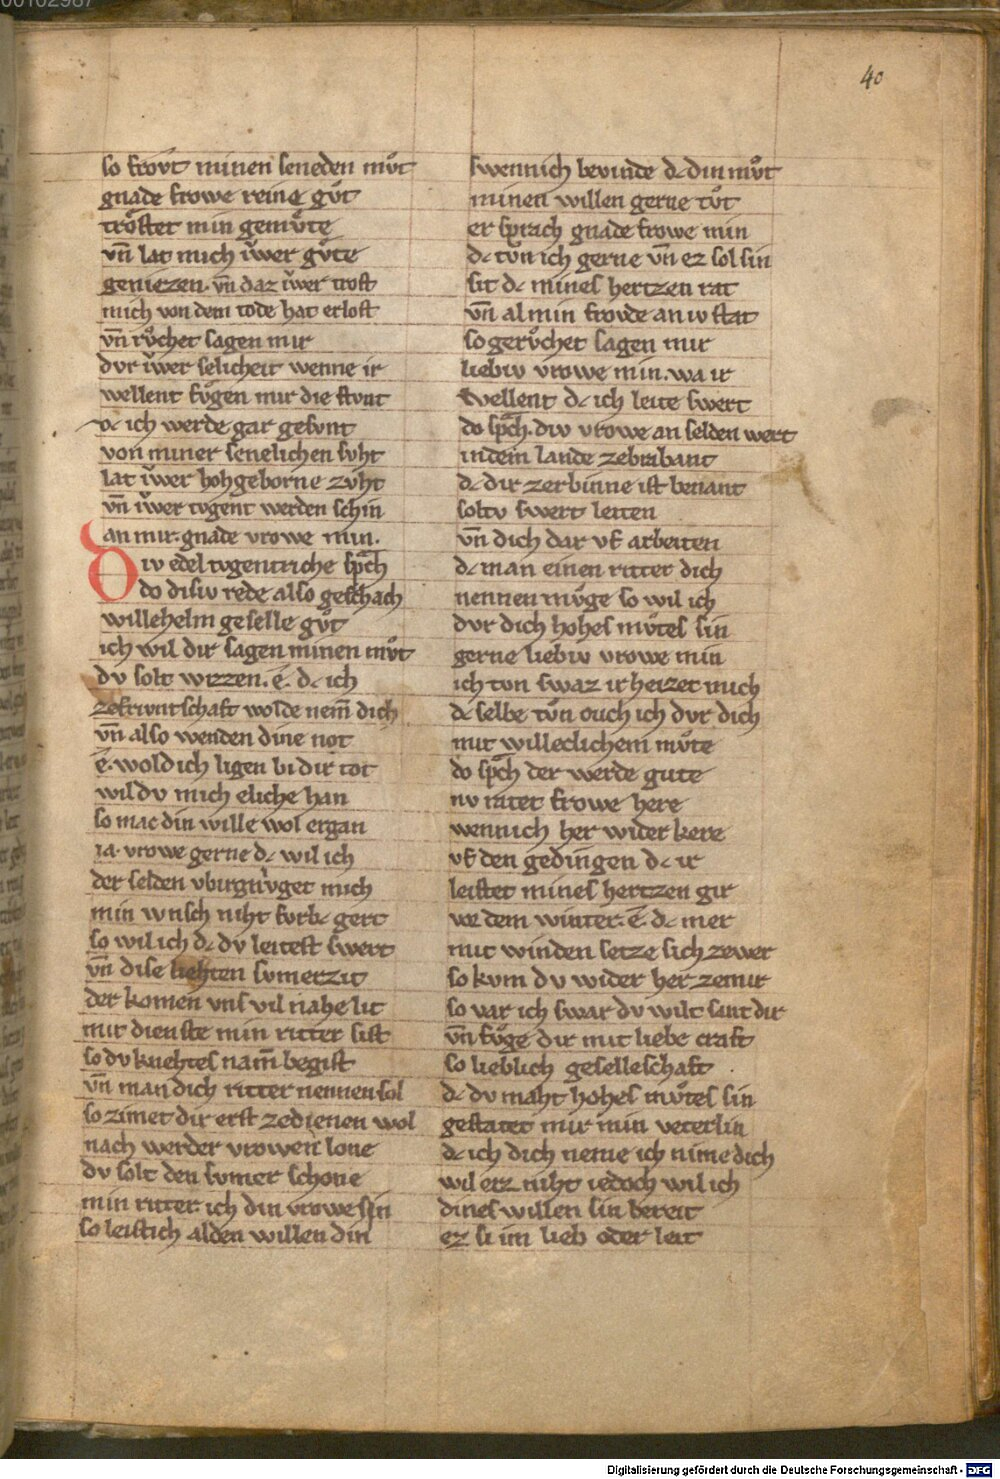 40
so froͮvt minen seneden mvͦt
gnade frowe reine gvͦt
troͤstet min gemvͤte
vn̄ lat mich iv̓wer gvͤte
geniezen. vn̄ daz iv̓wer trost
mich von dem tode hat erlost
vn̄ rvͦchet sagen mir
dvr iv̓wer selicheit wenne ir
wellent fvͤgen mir die stvnt
dc ich werde gar gesvnt
von miner senelichen svht
lat iv̓wer hohgeborne zvht
vn̄ iv̓wer tvgent werden schin
an mir. gnade vrowe min.
Div edel tvgentriche sp̃ch
do disiv rede also geschach
willehelm geselle gvͦt
ich wil dir sagen minen mvͦt
dv solt wizzen. e. dc ich
zefrivntschaft wolde nem̄ dich
vn̄ also wenden dine not
e. wold ich ligen bi dir tot
wil dv mich eliche han
so mac din wille wol ergan
ia. vrowe gerne dc wil ich
der selden vbirgnv̓get mich
min wnsch niht fvrbc gert
so wil ich dc dv leitest swert
vn̄ dise liehten svmerzit
der komen vns vil nahe lit
mir dienste min ritter sist
so dv knehtes nam̄ begist
vn̄ man dich ritter nennen sol
so zimet dir erst zedienen wol
nach werder vrowen lone
dv solt den svmer schone
min ritter ich din vrowe sin
so leist ich al den willen din
swennich bevinde dc din mvͦt
minen willen gerne tvͦt
er sprach gnade frowe min
dc tvͦn ich gerne vn̄ ez sol sin
sit dc mines hertzen rat
vn̄ al min froͮde an iv stat
so gervͦchet sagen mir
liebiv vrowe min. wa ir
wellent dc ich leite swert
do sp̃ch. div vrowe an selden wert
in dem lande zebrabant
dc dir zerbinne ist benant
soltv swert leiten
vn̄ dich dar vf arbeiten
dc man einen ritter dich
nennen mvͤge so wil ich
dvr dich hohes mvͦtes sin
gerne liebiv vrowe min
ich tvn swaz ir heizet mich
dc selbe tvͦn ouch ich dvr dich
mit willeclichem mvͦte
do sp̃ch der werde gute
nv ratet frowe here
wennich her wider kere
vf den gedingen dc ir
leistet mines hertzen gir
vor dem winter. e. dc mer
mit winden setze sich zewer
so kvm dv wider her zemir
so var ich swar dv wilt samt dir
vn̄ fvͤge dir mit liebe craft
so lieblich geselleschaft
dc dv maht hohes mvͦtes sin
gestatet mir min veterlin
dc ich dich neme ich nime dich
wil erz niht iedoch wil ich
dines willen sin bereit
ez si im lieb oder leit
Digitalisierung gefördert durch die Deutsche Forschungsgemeinschaft - DFG